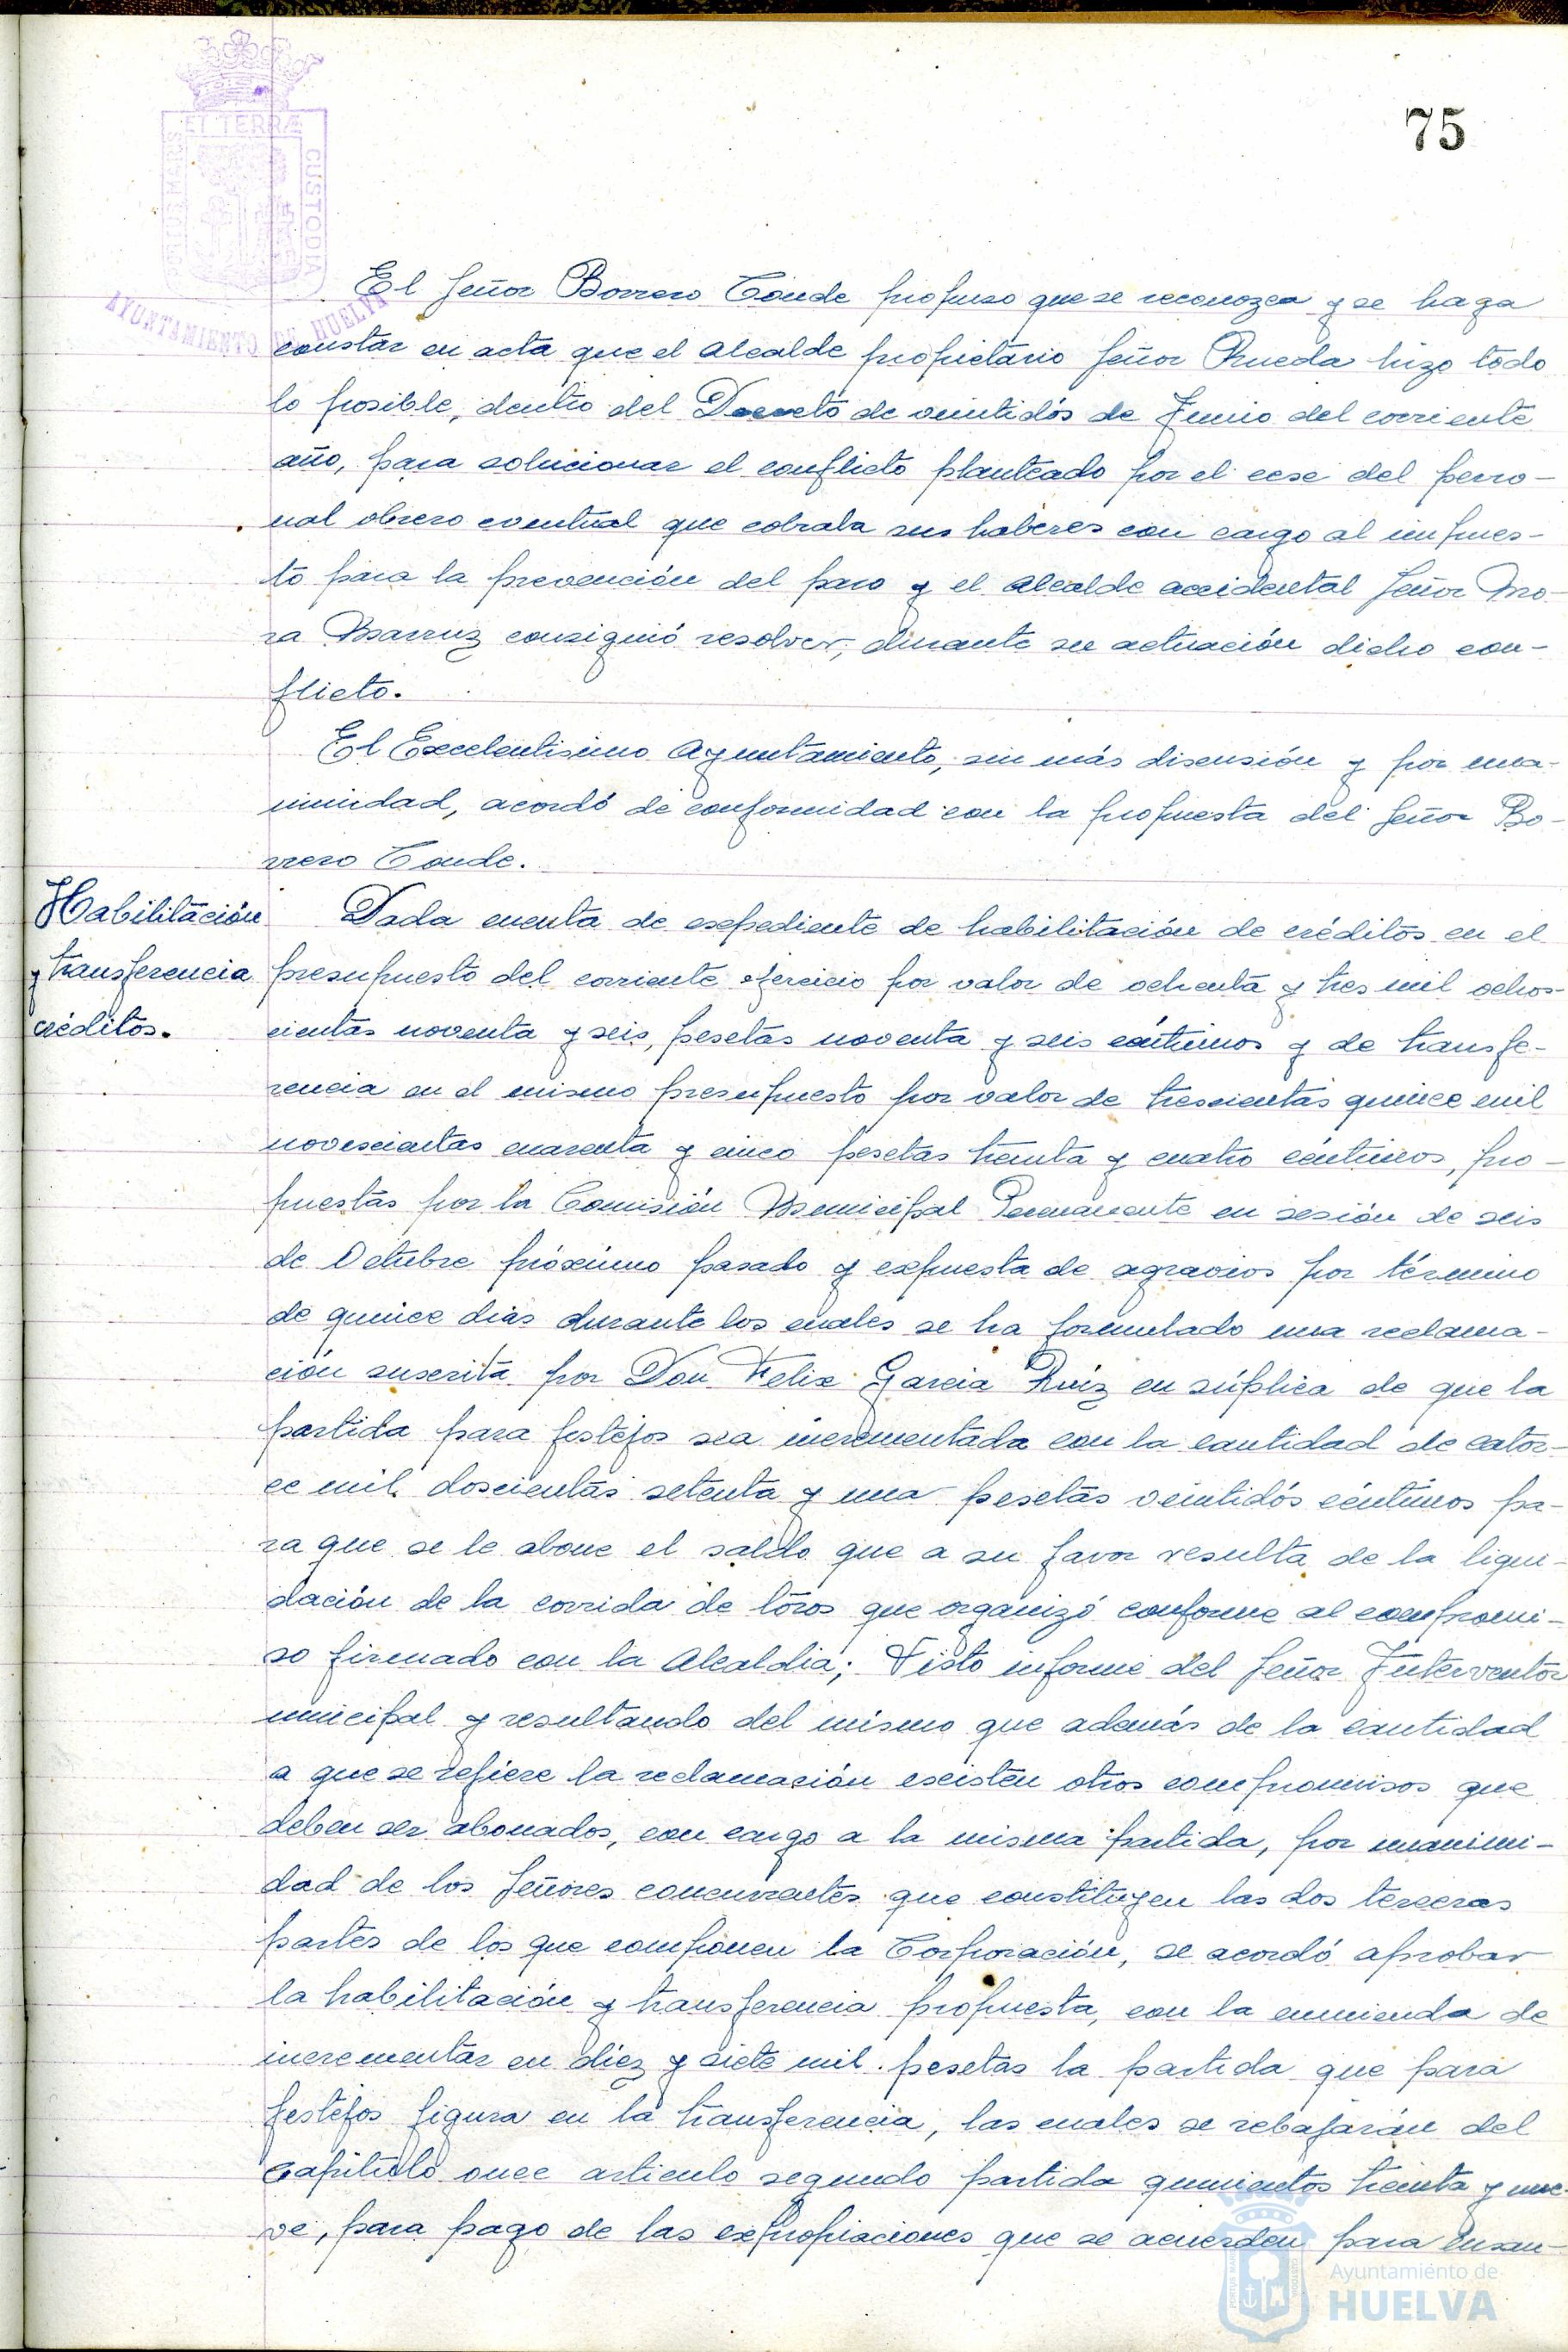 75
ET TERRÆ
CUSTODIA
PORTUS MARIS
AYUNTAMIENTO DE HUELVA
El Señor Borrero Conde propuso que se reconozca y se haga
constar en acta que el Alcalde propietario Señor Rueda hizo todo
lo posible, dentro del Decreto de veintidós de Junio del corriente
año, para solucionar el conflicto planteado por el cese del perso-
nal obrero eventual que cobraba sus haberes con cargo al impues-
to para la prevención del paro y el Alcalde accidental Señor Mo-
ra Marruz consiguió resolver, durante su actuación dicho con-
flicto.
El Excelentisimo Ayuntamiento, sin más discusión y por una-
nimidad, acordó de conformidad con la propuesta del Señor Bo-
rrero Conde.
Habilitación
y transferencia
créditos.
Dada cuenta de expediente de habilitación de créditos en el
presupuesto del corriente ejercicio por valor de ochenta y tres mil ochos-
cientas noventa y seis, pesetas noventa y seis céntimos y de transfe-
rencia en el mismo presupuesto por valor de trescientas quince mil
novescientas cuarenta y cinco pesetas treinta y cuatro céntimos, pro-
puestas por la Comisión Municipal Permanente en sesión de seis
de Octubre próximo pasado y expuesta de agravios por término
de quince dias durante los cuales se ha formulado una reclama-
ción suscrita por Don Felix Garcia Ruíz en súplica de que la
partida para festejos sea incrementada con la cantidad de cator-
ce mil doscientas setenta y una pesetas veintidós céntimos pa-
ra que se le abone el saldo que a su favor resulta de la liqui-
dación de la corrida de toros que organizó conforme al compromi-
so firmado con la Alcaldia; Visto informe del Señor Interventor
municipal y resultando del mismo que además de la cantidad
a que se refiere la reclamación existen otros compromisos que
deben ser abonados, con cargo a la misma partida, por unanimi-
dad de los Señores concurrentes que constituyen las dos terceras
partes de los que componen la Corporación, se acordó aprobar
la habilitación y transferencia propuesta, con la enmienda de
incrementar en diez y siete mil pesetas la partida que para
festejos figura en la transferencia, las cuales se rebajarán del
Capitulo once articulo segundo partida quinientos treinta y nue-
ve, para pago de las expropiaciones que se acuerden para ensan-
Ayuntamiento de
HUELVA